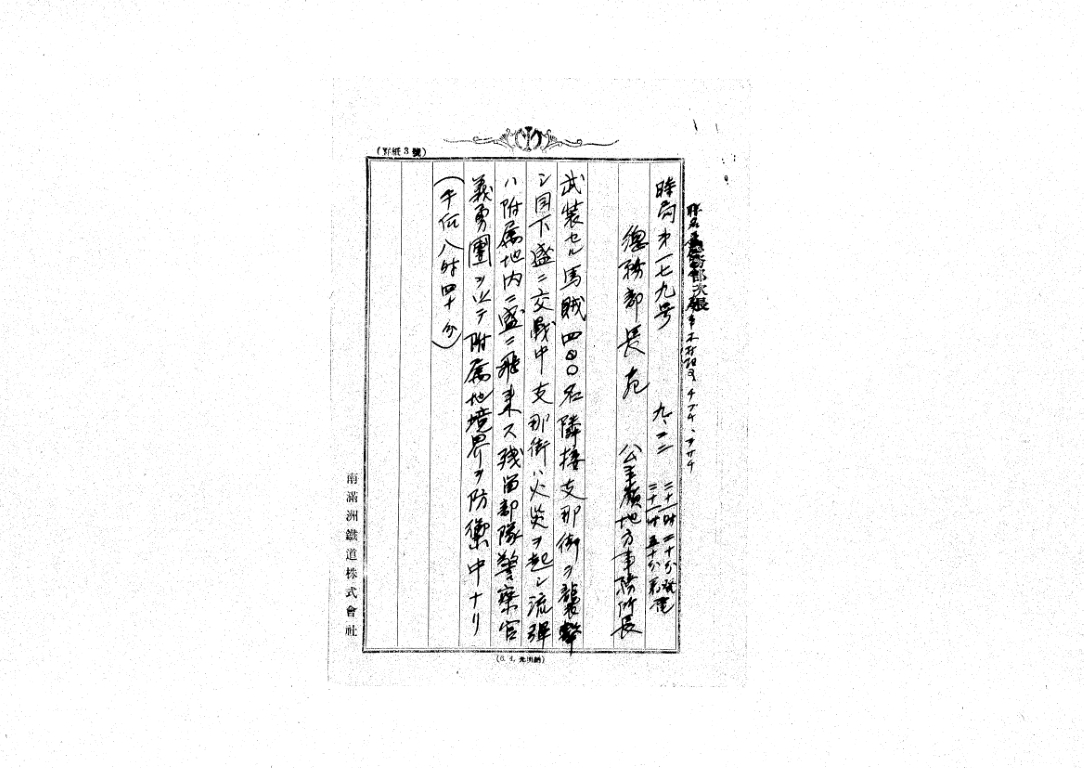 (野紙3號)
時局第一七九号 九、二二 二十一时二十分發電
二十一时五十分来電
總務部長宛 公主嶺地方事務所長
武装セル馬賊四〇〇名隣接支那街ヲ襲撃
シ目下盛ニ交戰中支那街ハ火災ヲ起シ流彈
ハ附属地内ニ盛ニ飛来ス残留部隊警察官
義勇團ヲ以テ附属地境界ヲ防禦中ナリ
(午后八时四十分)
南滿洲鐵道株式會社